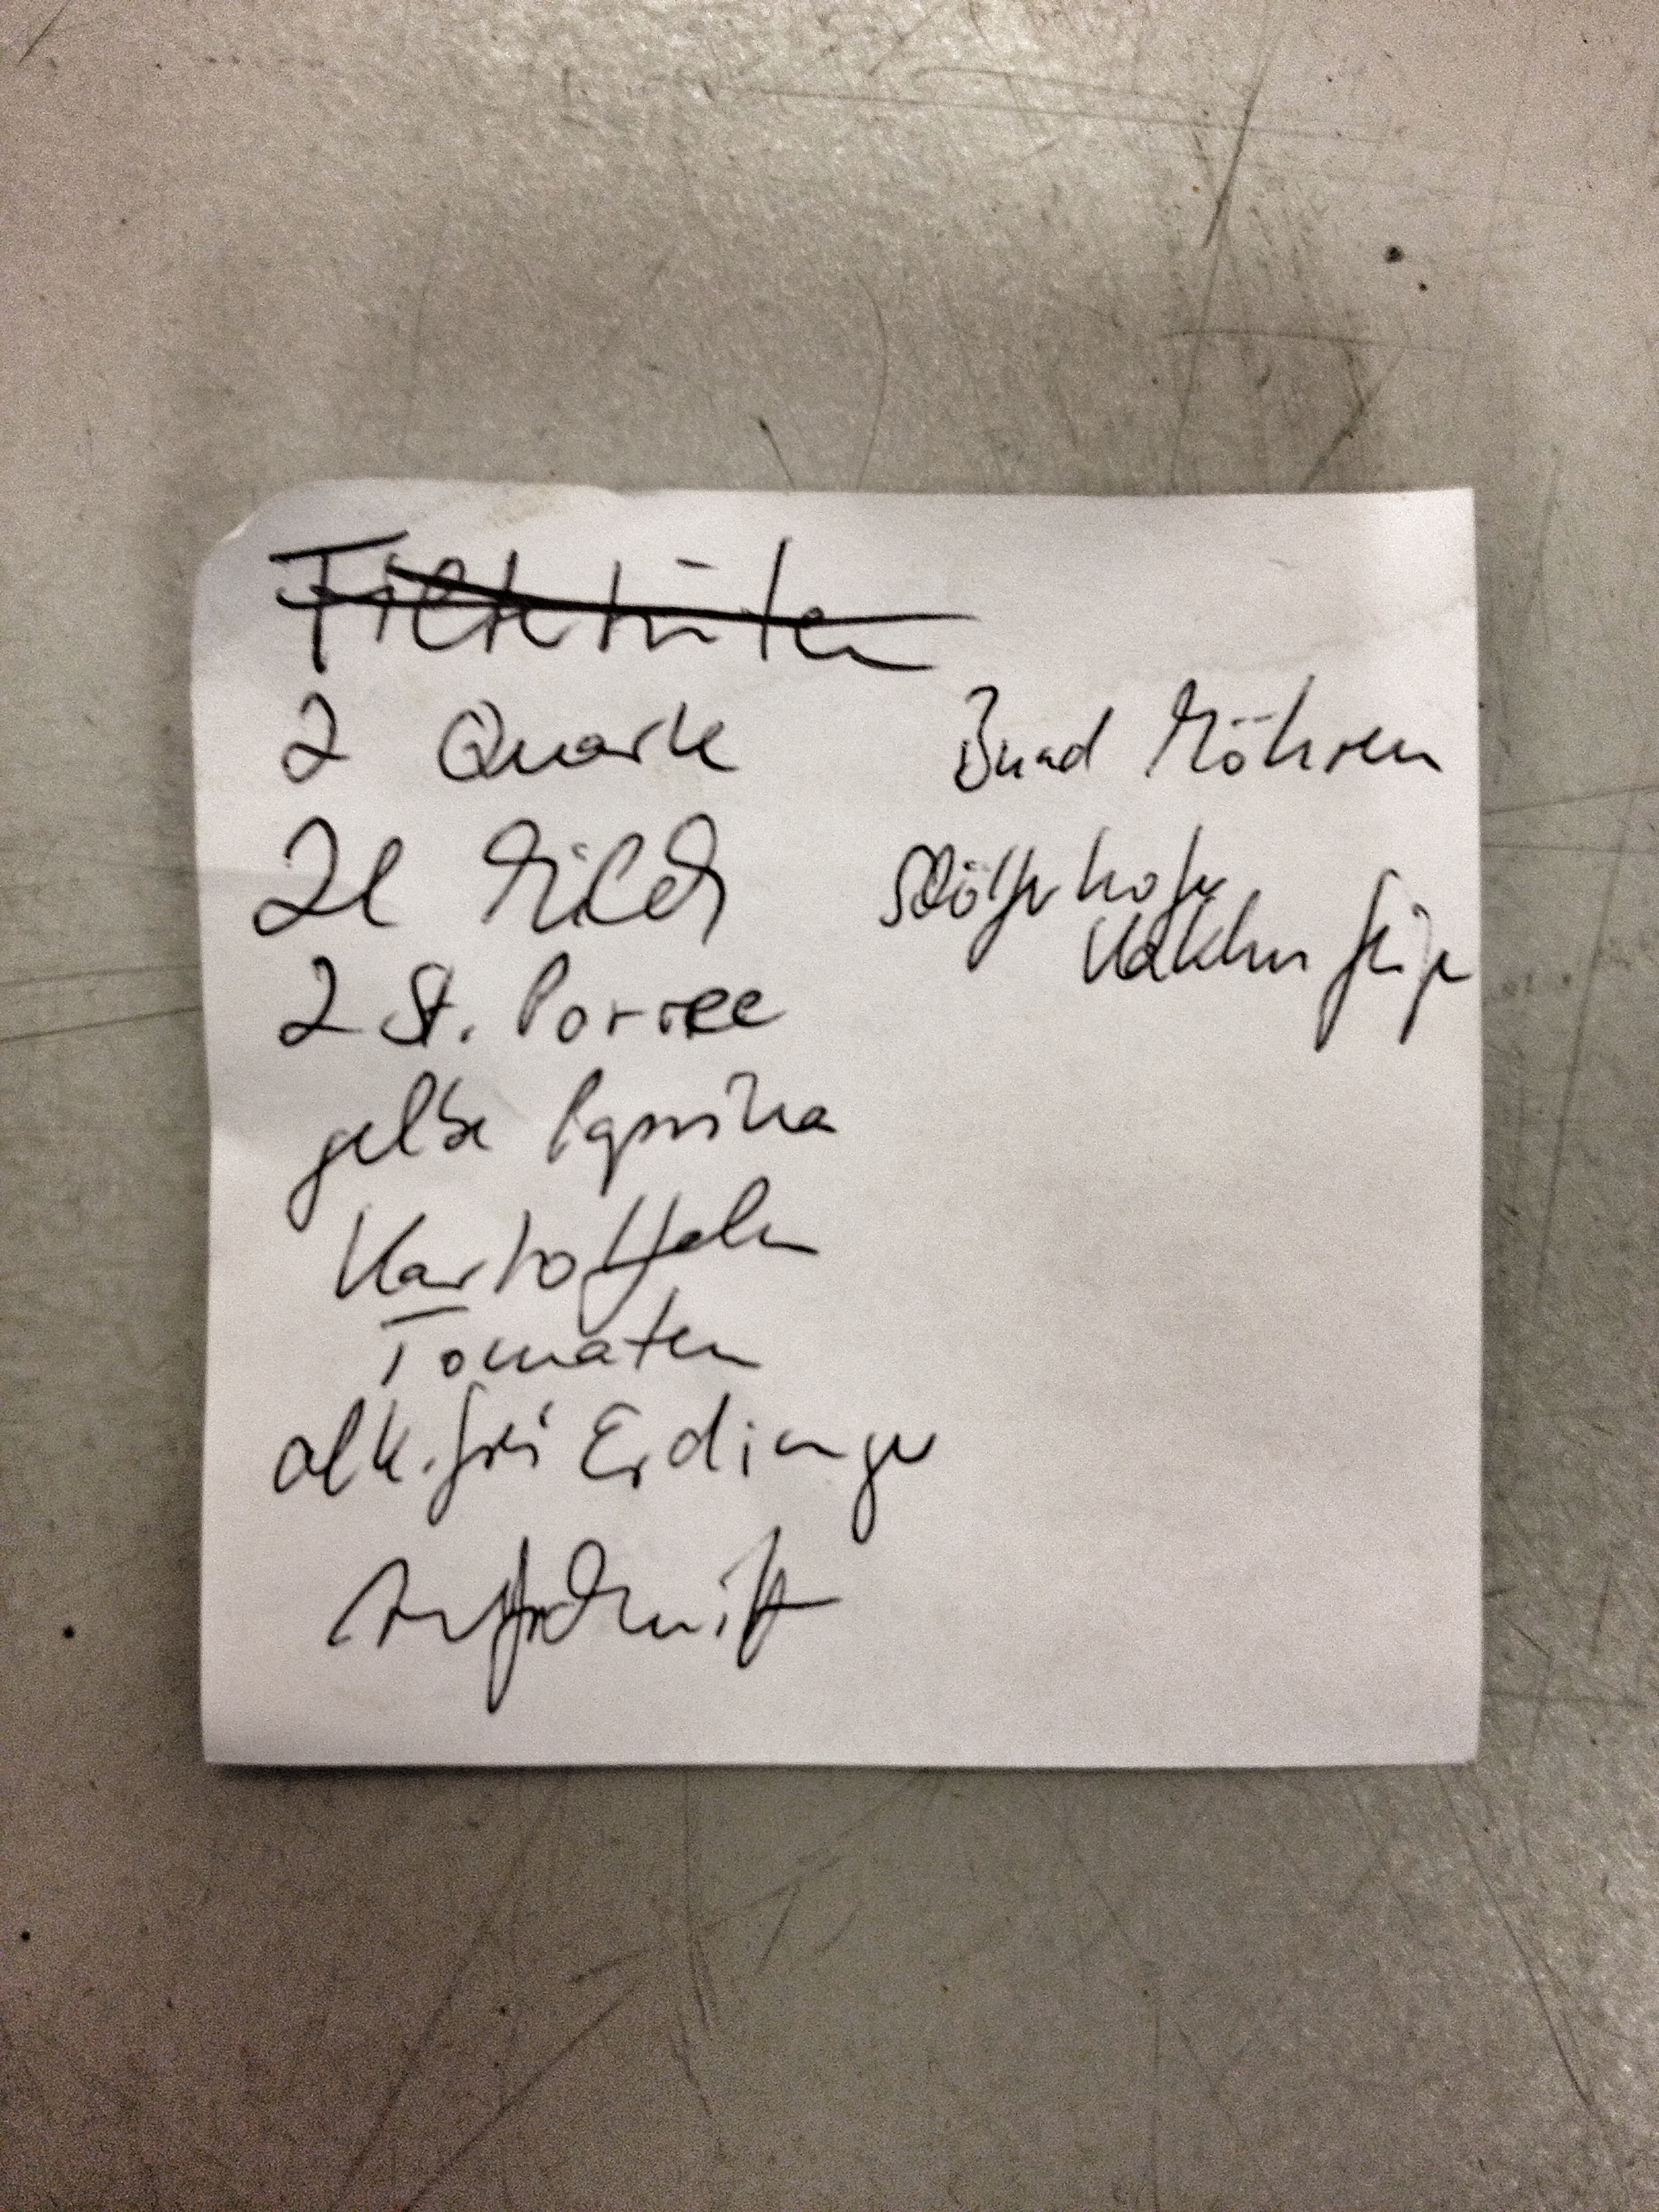 Filtertüten
2 Quark
2l Milch
2 St. Porree
gelbe Paprika
Kartoffeln
Tomaten
alk. frei Erdinger
Aufschnitt
Bund Möhren
Schöfferhofer
Kaktusfeige